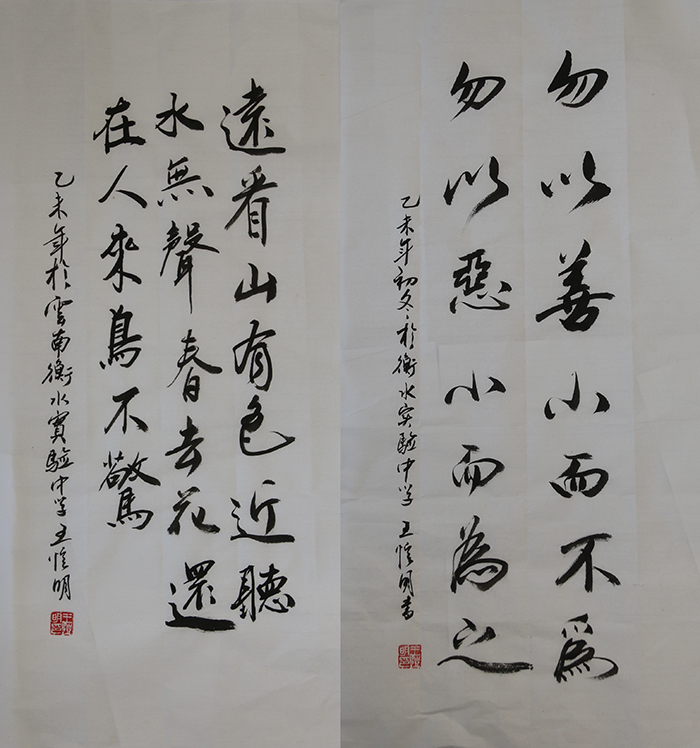 遠看山有色近聽
水無聲春去花還
在人來鳥不驚
乙未年於雲南衡水實驗中学王明
勿以善小而不為
勿以惡小而為之
乙未年初冬於衡水实驗中学王明書